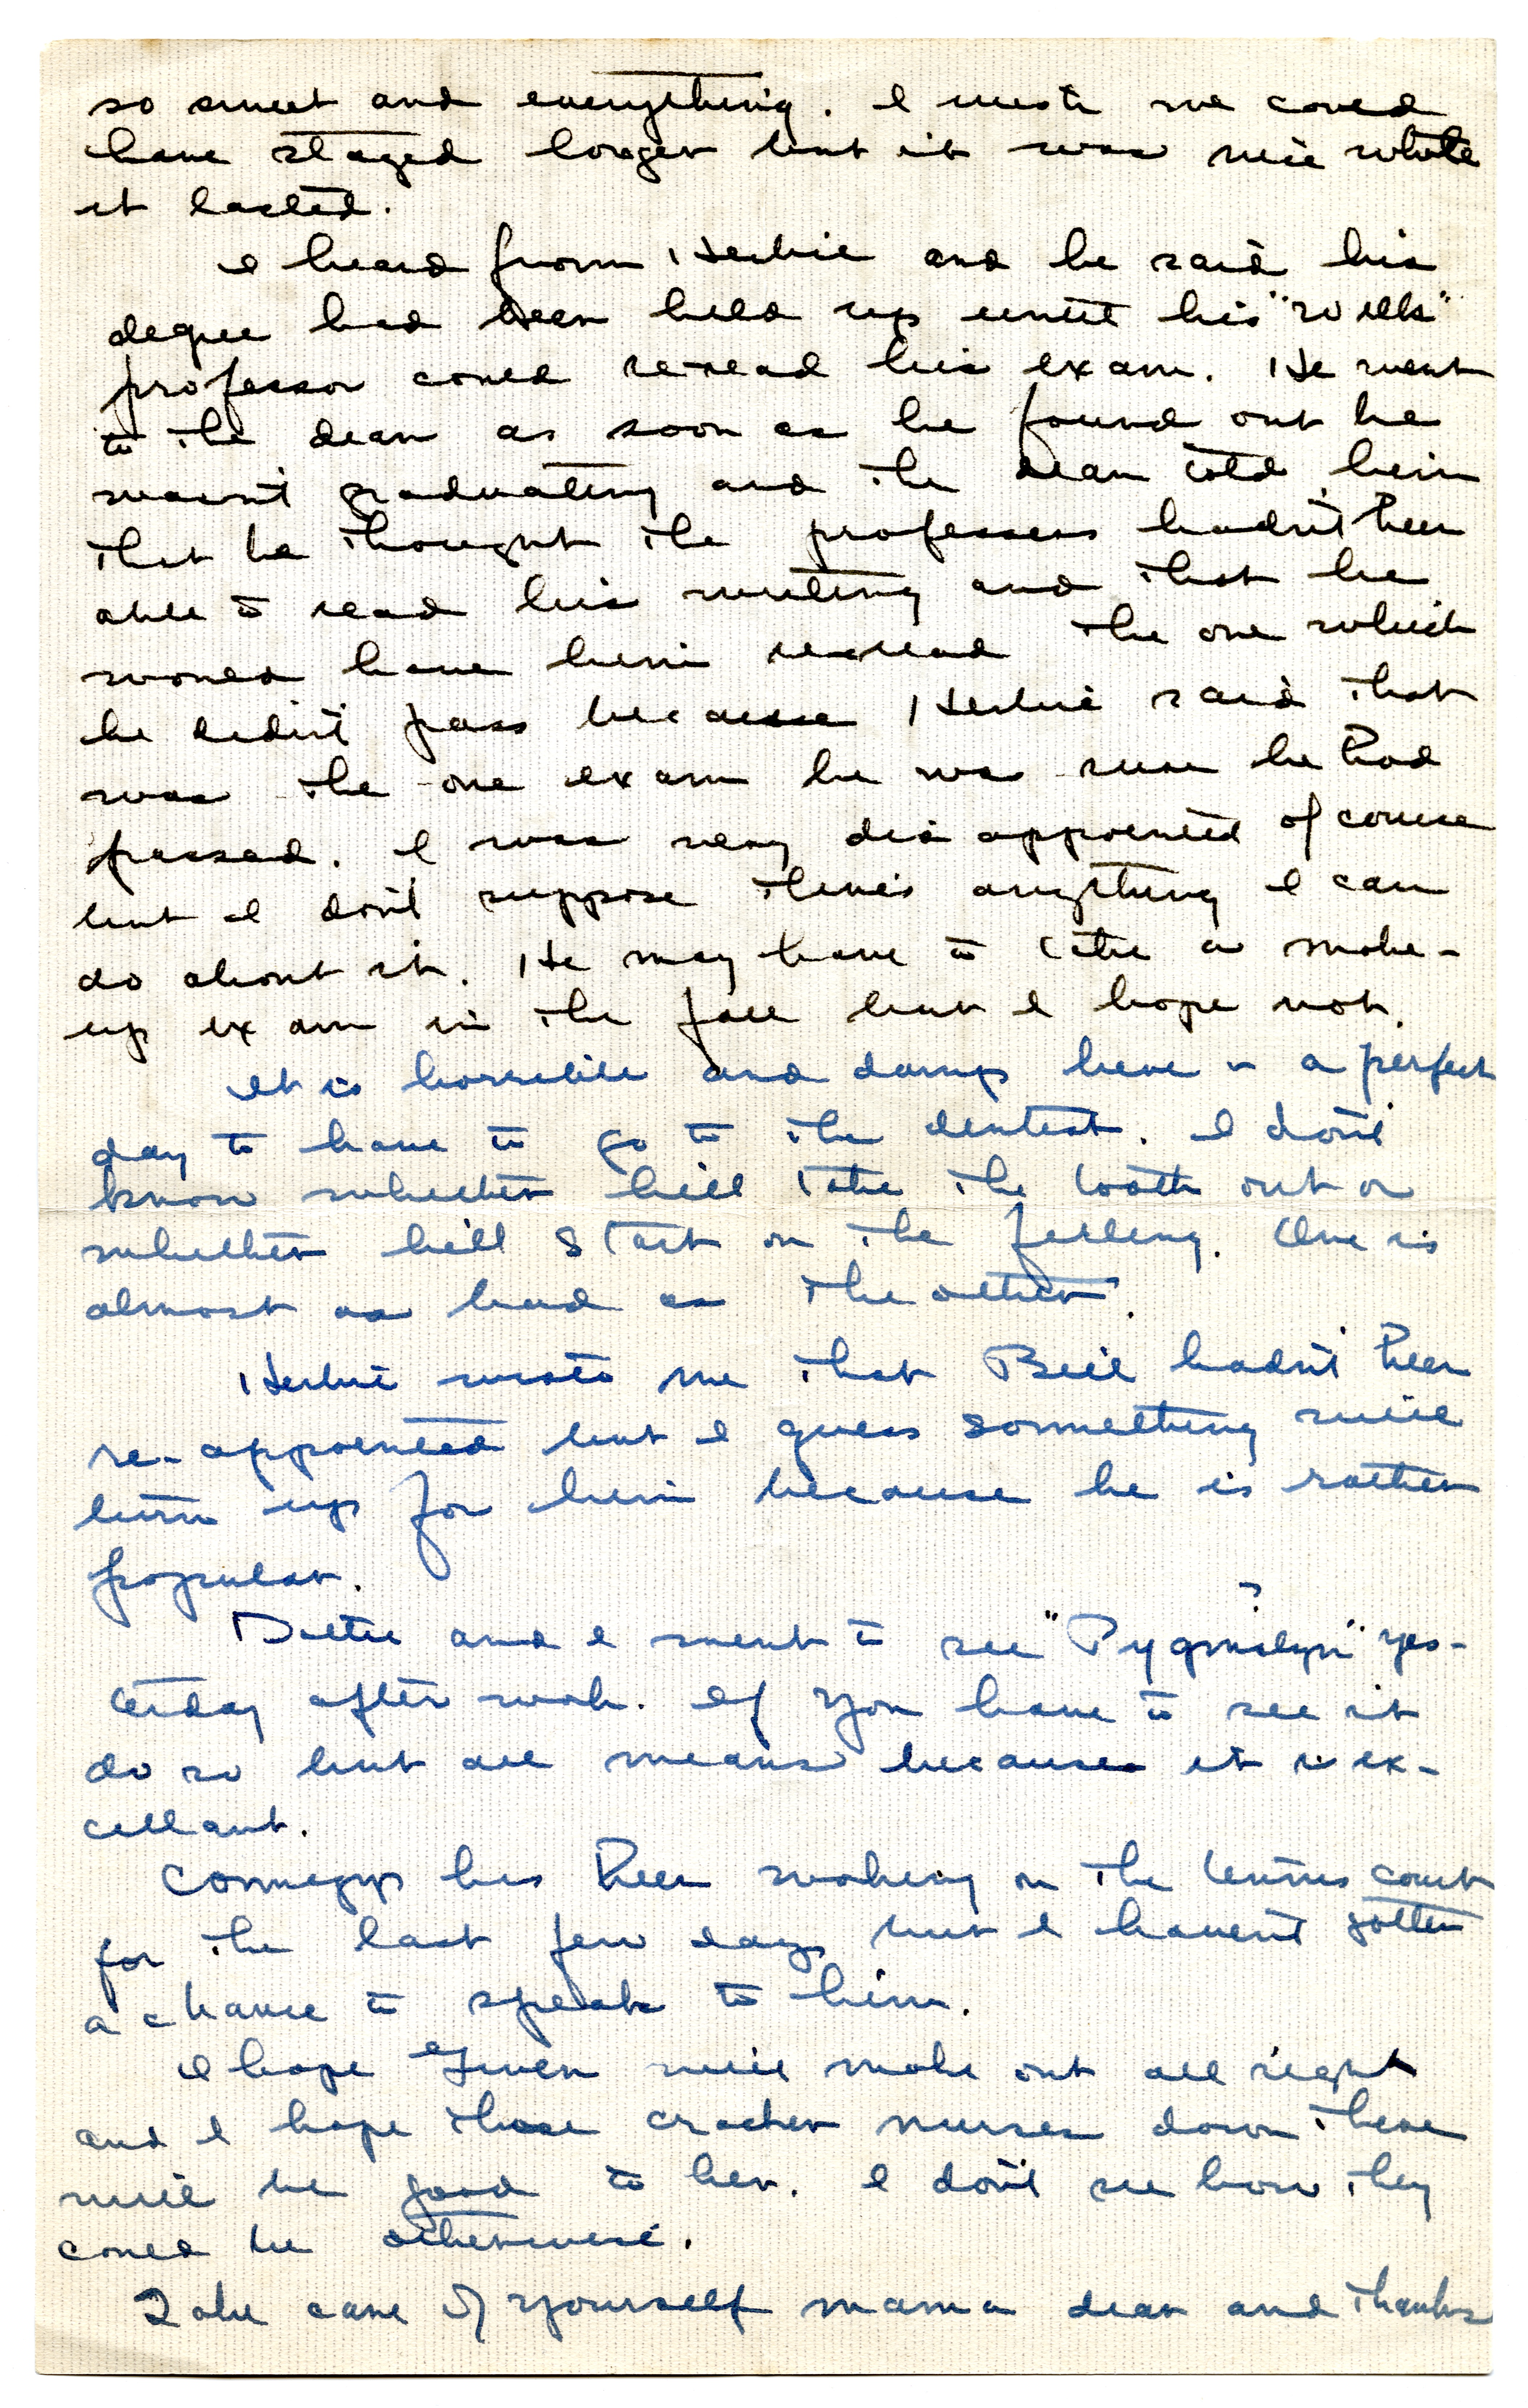 so sweet and everything. I wish we could
have stayed longer but it was nice while
it lasted.
I heard from Herbie and he said his
degree had been held up until his "Wills"
professor could re-read his exam. He went
to the dean as soon as he found out he
wasn't graduating and the dean told him
that he thought the professors hadn't been
able to read his writing and that he
would have him re-read the one which
he didn't pass because Herbie said that
was the one exam he was sure he had
passed. I was very disappointed of course
but I don't suppose there's anything I can
do about it. He may have to take a make-
up exam in the fall but I hope not.
It is horrible and damp here - a perfect
day to have to go to the dentist. I don't
know whether he'll take the tooth out or
whether he'll start on the filling. One is
almost as bad as the other.
Herbie wrote me that Bill hadn't been
re-appointed but I guess something will
turn up for him because he is rather
popular.
?
and I went to see "Pygmalyn" yes-
terday after work. If you have to see it
do so but all means because it is ex-
cellant.
has been working on the tennis court
for the last few days but I haven't gotten
a chance to speak to him.
I hope Gwen will make out all right
and I hope those cracker nurses down there
will be good to her. I don't see how they
could be otherwise.
Take care of yourself mama dear and thanks